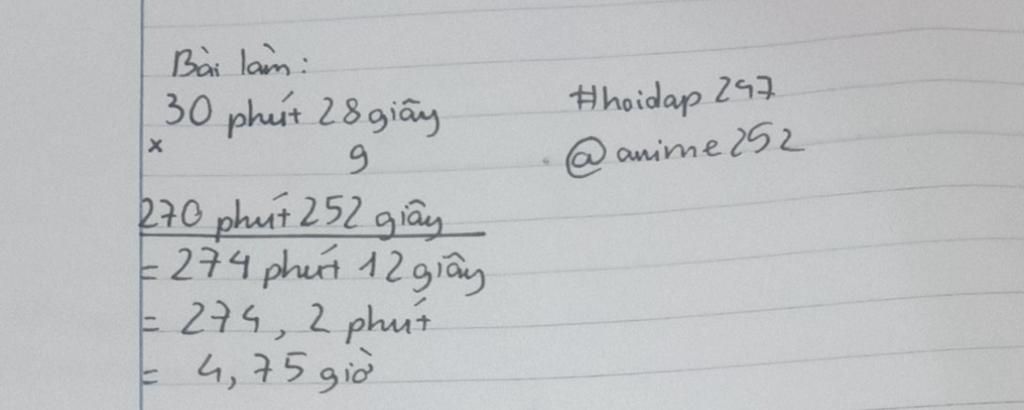 Bài làm:
30 phút 28 giây
x
9
270 phút 252 giây
= 274 phút 12 giây
= 274, 2 phút
= 4, 75 giờ
#hoidap 247
@anime 252